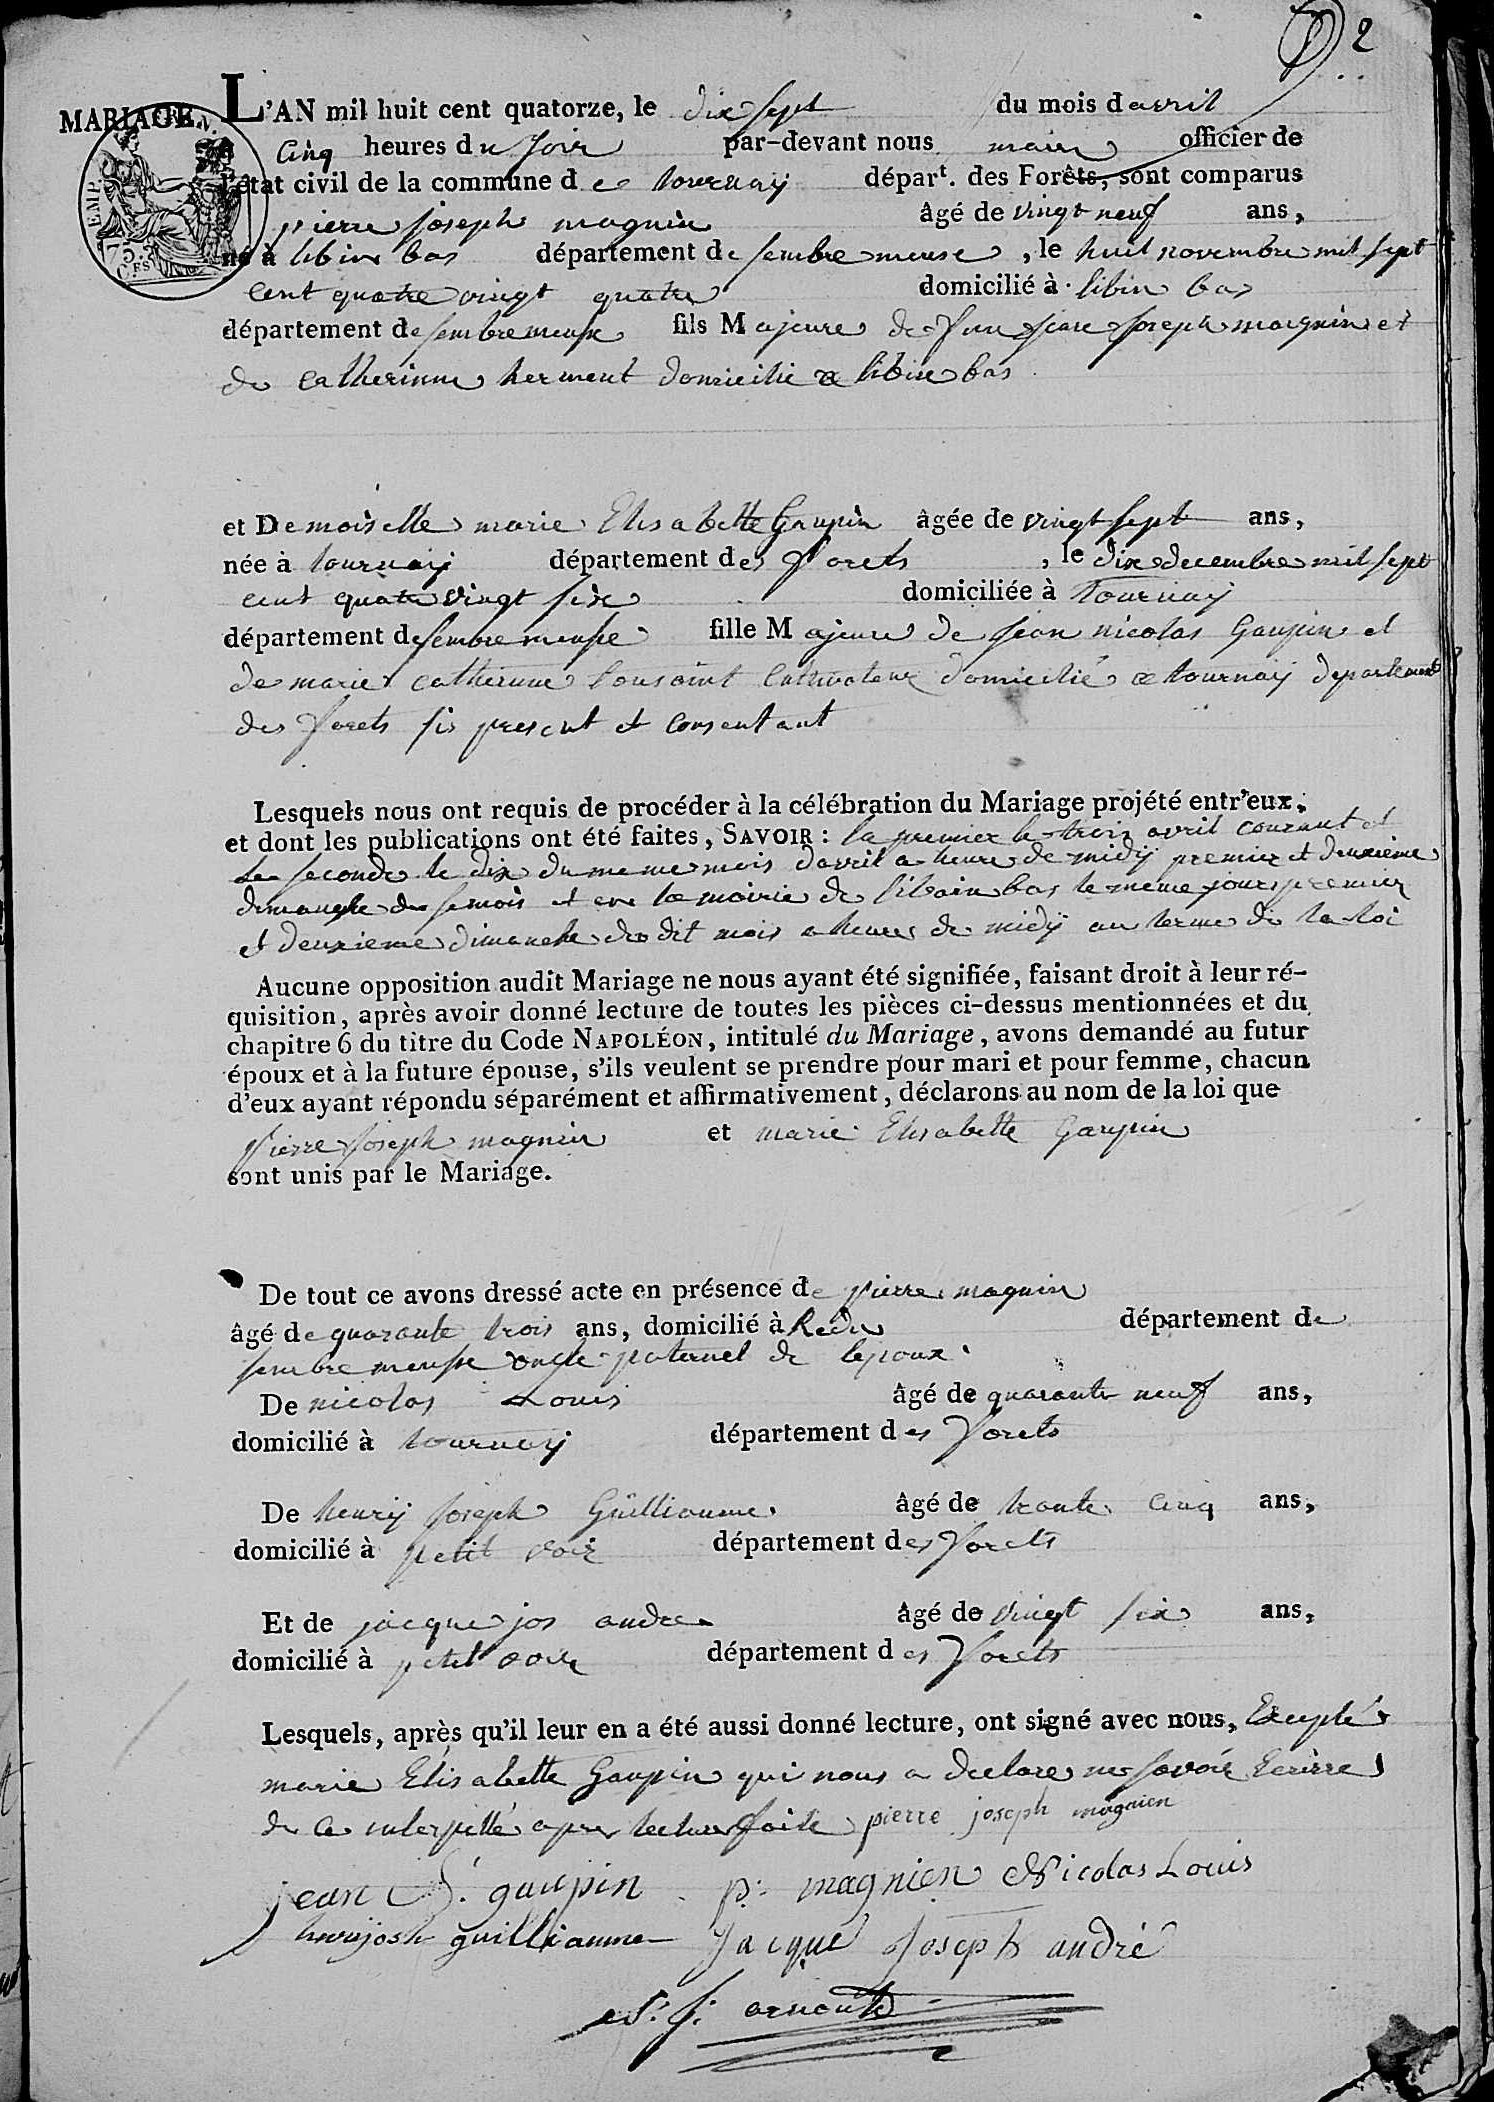 2
MARIAGE.
L'AN mil huit cent quatorze, le dix sept du mois d avril
Cinq heures du Soir par-devant nous maire officier de
l'état civil de la commune de tournay dépar^t. des Forêts, sont comparus
pierre joseph magnin âgé de vingt neuf ans,
né à libin bas département de sembre meuse, le huit novembre mil sept
cent quatre vingt quatre domicilié à libin bas
département de sembre meuse fils Majeure de feu jean joseph magnin et
de catherinne herment domicilie a libin bas
et Demoiselle marie Elisabette Gaupin âgée de vingt sept ans,
née à tournay département des forets, le dix decembre mil sept
cent quatre vingt six domiciliée à Tournay
département de sembre meuse fille Majeure de jean nicolas Gaupin et
de marie catherinne tousaint Cultivateur domicilié a tournay departement
des forets si present et consentant
Lesquels nous ont requis de procéder à la célébration du Mariage projété entr'eux,
et dont les publications ont été faites, SAVOIR : la premier le trois avril courant et
la seconde le dix du meme mois d'avril a heure de midÿ premier et deuxieme
dimanche du semois et en la mairie de libain bas le meme jours premier
et deuxieme dimanche du dit mois a heure de midÿ au terme de la loi
Aucune opposition audit Mariage ne nous ayant été signifiée, faisant droit à leur ré-
quisition, après avoir donné lecture de toutes les pièces ci-dessus mentionnées et du
chapitre 6 du titre du Code NAPOLÉON, intitulé du Mariage, avons demandé au futur
époux et à la future épouse, s'ils veulent se prendre pour mari et pour femme, chacun
d'eux ayant répondu séparément et affirmativement, déclarons au nom de la loi que
pierre joseph magnin et marie Elisabette Gaupin
sont unis par le Mariage.
De tout ce avons dressé acte en présence de pierre magnin
âgé de quarante trois ans, domicilié à Redu département de
sembre meuse oncle paternel de lepoux
De nicolas Louis âgé de quarante neuf ans,
domicilié à tournay département des forets
De henrÿ joseph Guilliaume âgé de trante cinq ans,
domicilié à petit voir département des forets
Et de jacque jos andre âgé de vingt six ans,
domicilié à petit voir département des forets
Lesquels, après qu'il leur en a été aussi donné lecture, ont signé avec nous, Excepté
marie Elisabette Gaupin qui nous a declare ne savoir Ecrirre
de ce interpellé apres lecture faite pierre joseph magnien
jean N. gaupin p. magnien Nicolas Louis
henrijosh guilliaume Jacque Joseph andré
N. j. arnould